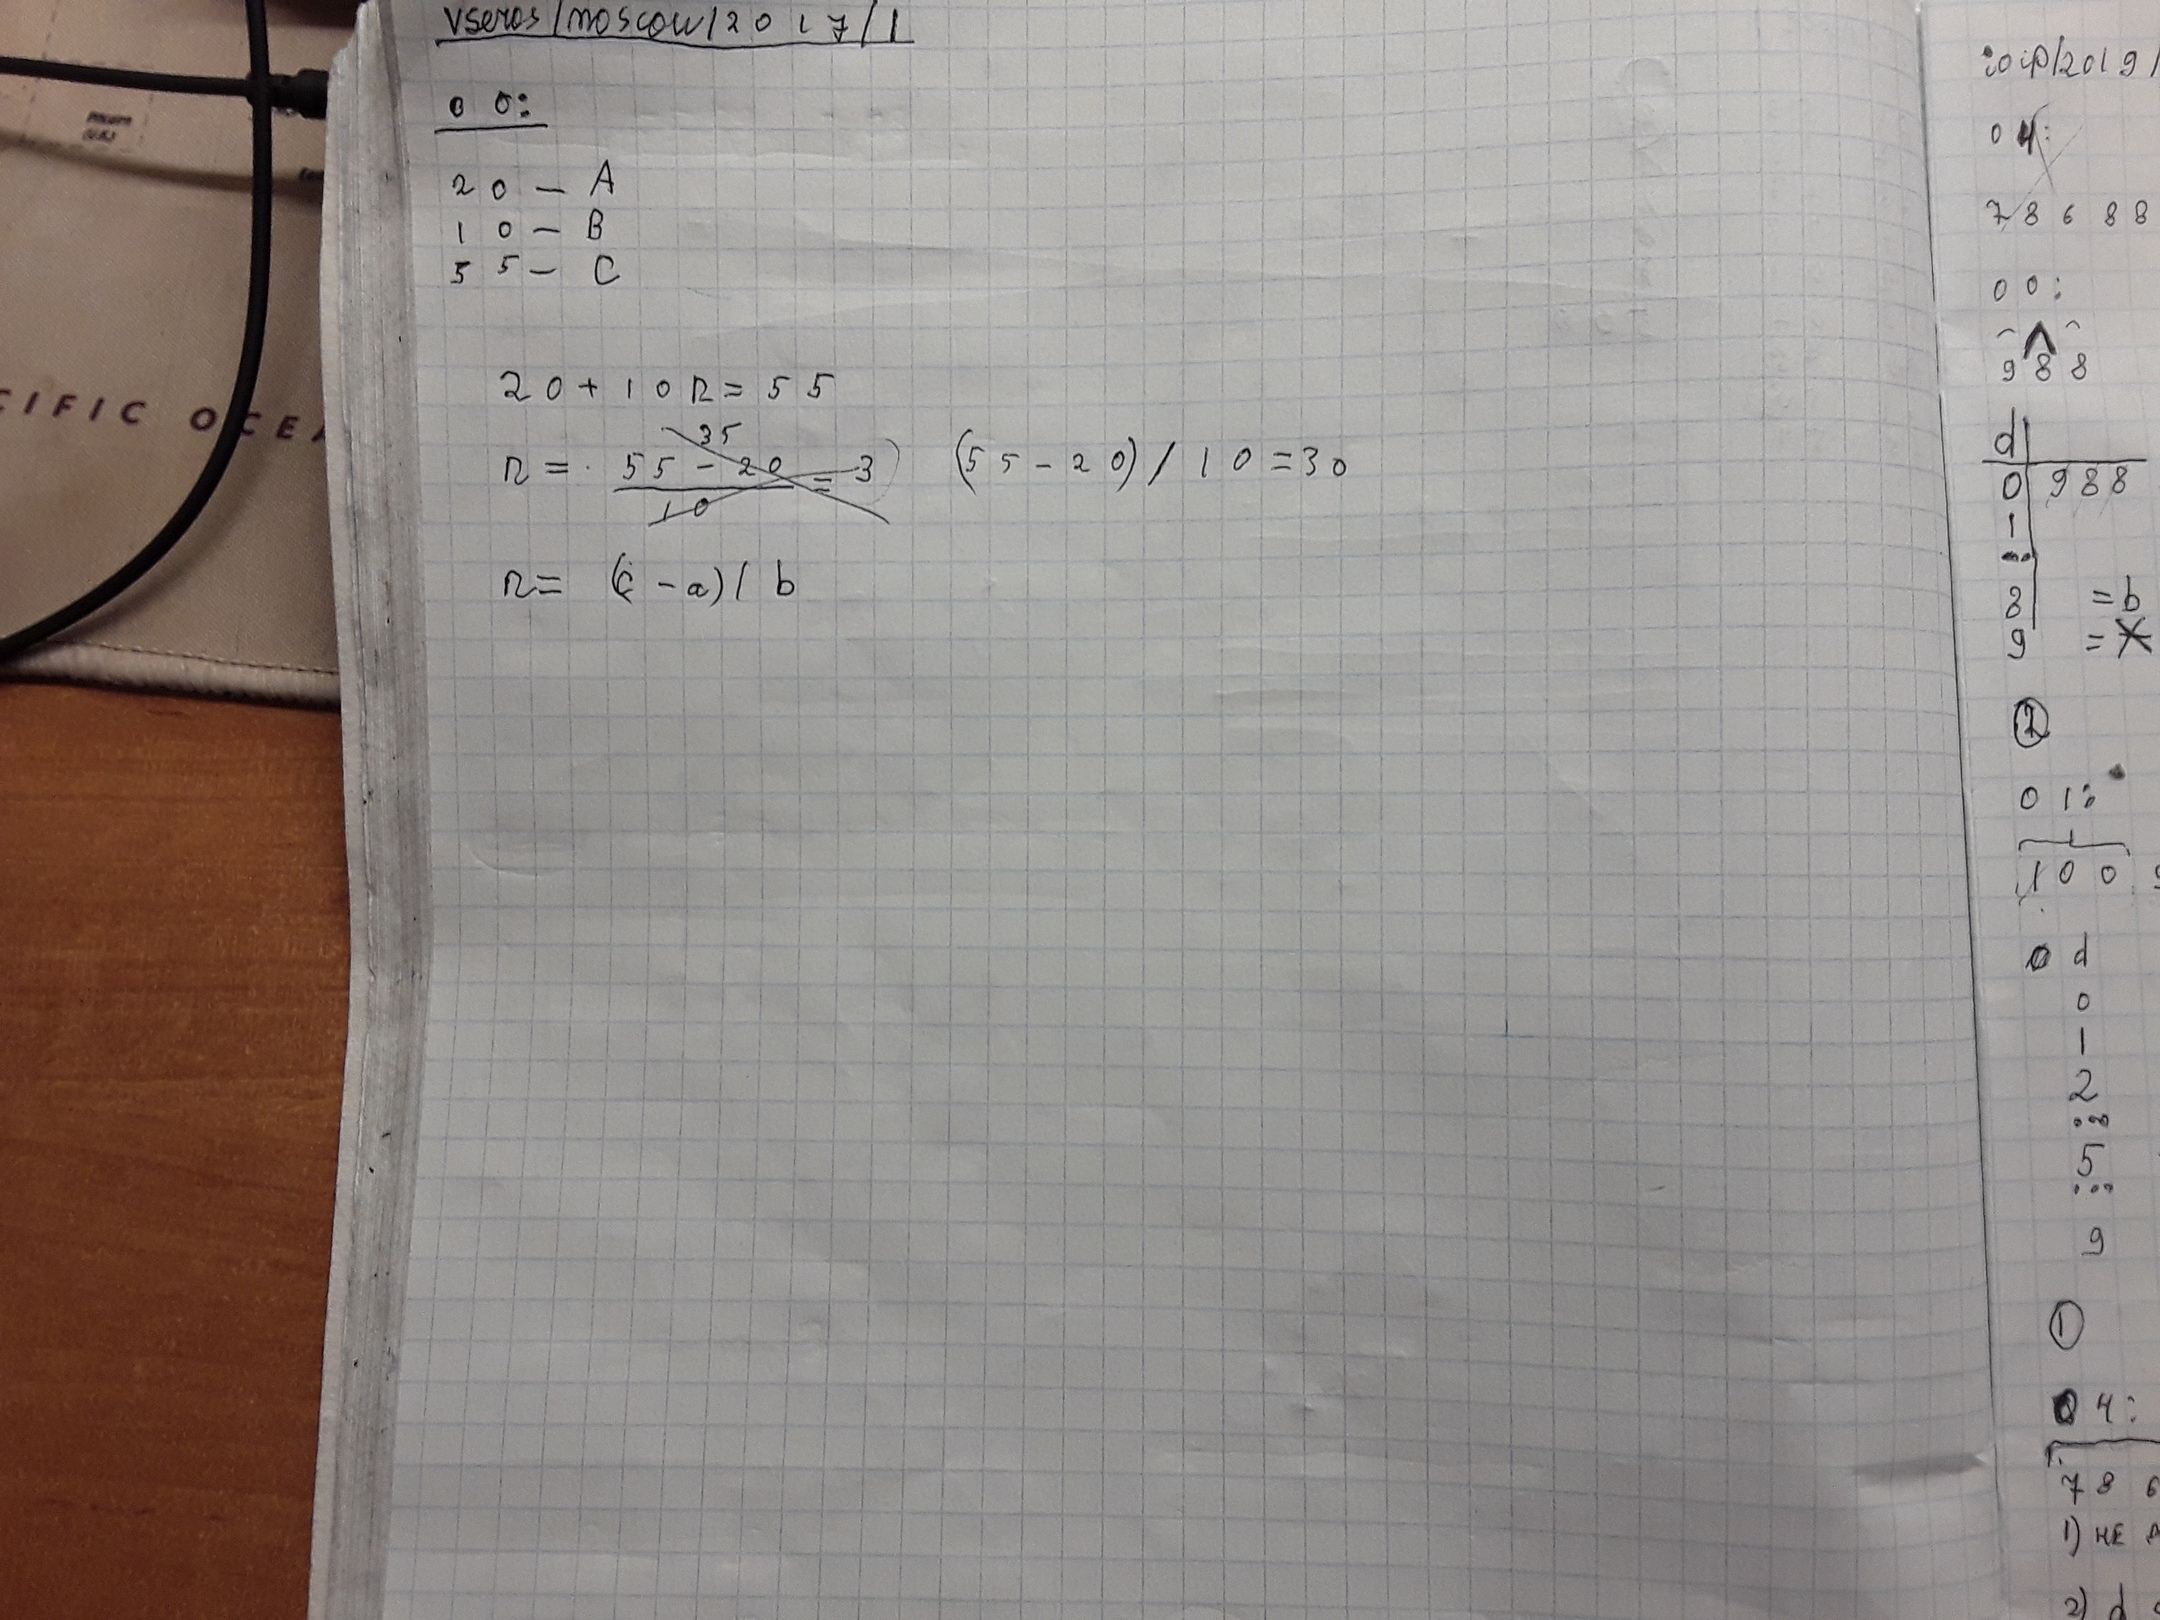 vseros/moscow/2017/1
00:
20 – A
10 – B
55 – C
20 + 10n = 55
35
n = 55 – 20 = 3 (55 – 20) / 10 = 30
10
n = (c – a) / b
CIFIC OCEA
ioip/2019/
04:
78688
00:
988
d
0 988
1
...
8 = b
9 =
2
01:
1
100
d
0
1
2
...
5
...
9
1
04:
786
1) НЕ
2) d